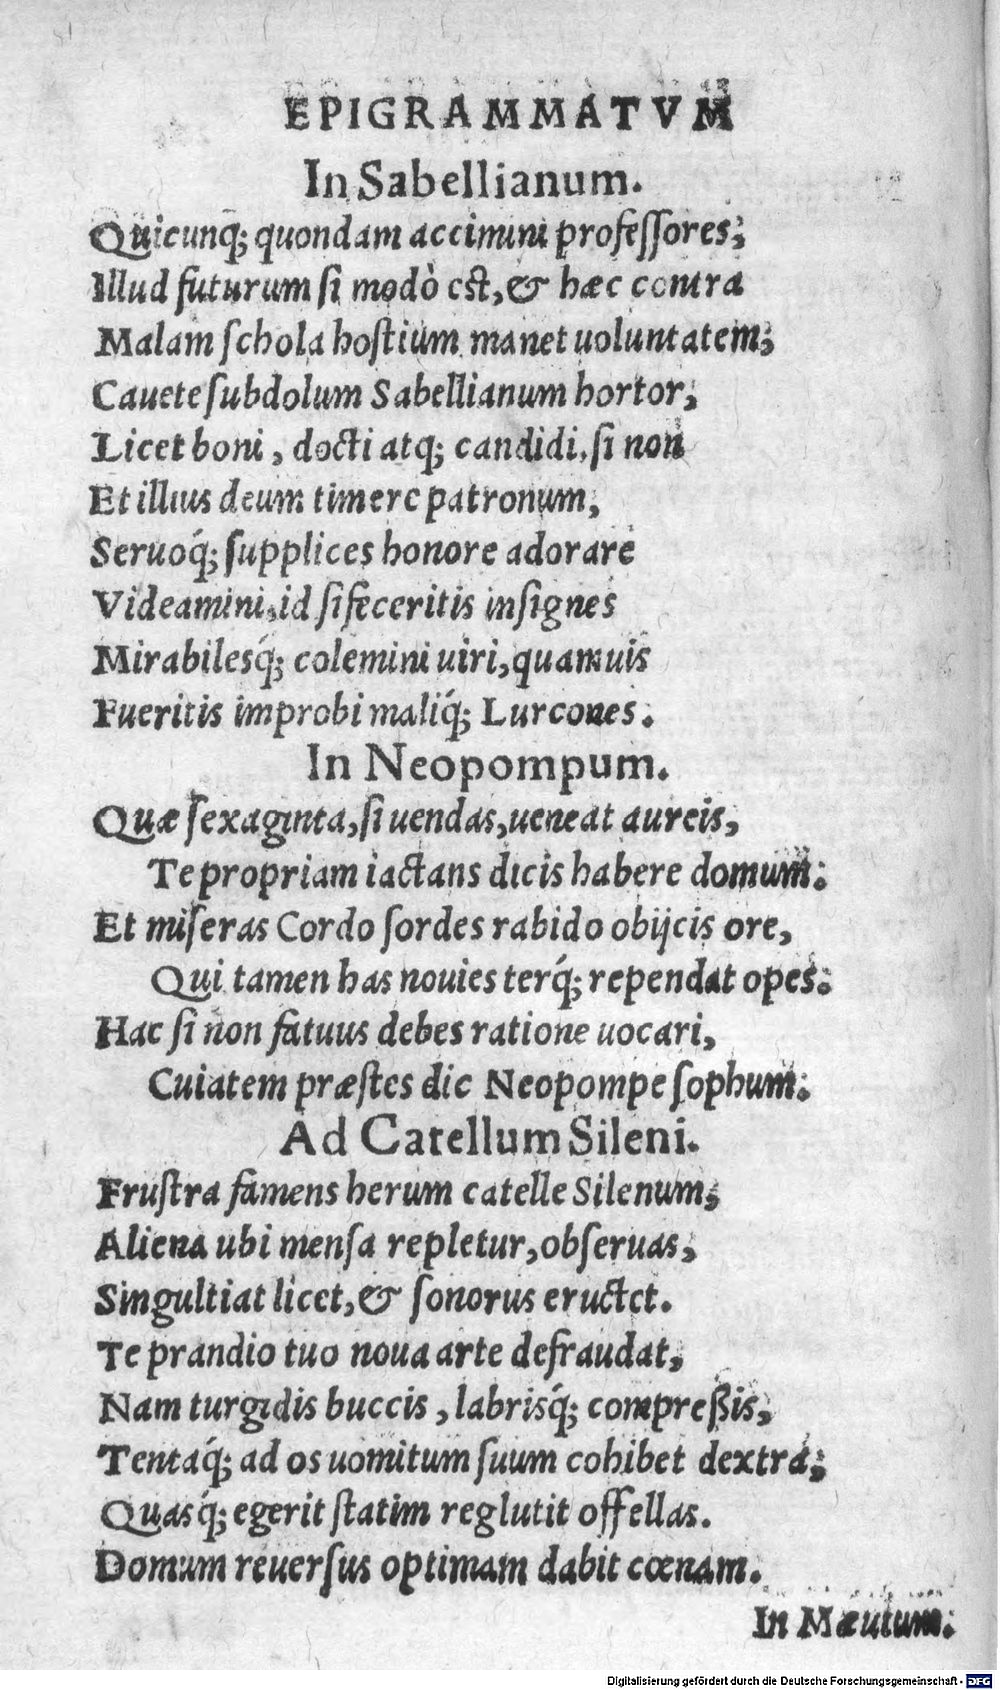 EPIGRAMMATVM
In Sabellianum.
Quicunq; quondam accimini professores;
Illud futurum si modò est, & hæc contra
Malam schola hostium manet uoluntatem;
Cauete subdolum Sabellianum hortor;
Licet boni, docti atq; candidi, si non
Et illius deum timere patronum,
Seruoq́; supplices honore adorare
Videamini, id si feceritis insignes
Mirabilesq́; colemini uiri, quamuis
Fueritis improbi maliq́; Lurcones.
In Neopompum.
Quæ sexaginta, si uendas, ueneat aureis,
Te propriam iactans dicis habere domum:
Et miseras Cordo sordes rabido obijcis ore,
Qui tamen has nouies terq́; rependat opes:
Hac si non fatuus debes ratione uocari,
Cuiatem præstes dic Neopompe sophum:
Ad Catellum Sileni.
Frustra famens herum catelle Silenum;
Aliena ubi mensa repletur, obseruas,
Singultiat licet, & sonorus eructet.
Te prandio tuo noua arte defraudat,
Nam turgidis buccis, labrisq́; compreßis,
Tentaq́; ad os uomitum suum cohibet dextra;
Quasq́; egerit statim reglutit offellas.
Domum reuersus optimam dabit cœnam.
In Mæuium.
Digitalisierung gefördert durch die Deutsche Forschungsgemeinschaft - DFG